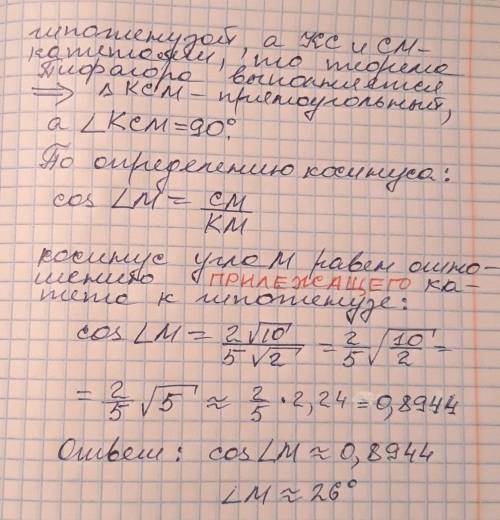 гипотенузой, а КС и СМ-
катетами, то теорема
Пифагора выполняется
⇒ △ КСМ - прямоугольный,
а ∠КСМ = 90°.
По определению косинуса:
cos ∠M = CM/KM
косинус угла М равен отно-
шению ПРИЛЕЖАЩЕГО ка-
тета к гипотенузе:
cos ∠M = 2√10/5√2 = 2/5 √10/2 =
= 2/5 √5 ≈ 2/5 · 2,24 = 0,8944
Ответ: cos∠M ≈ 0,8944
∠M ≈ 26°